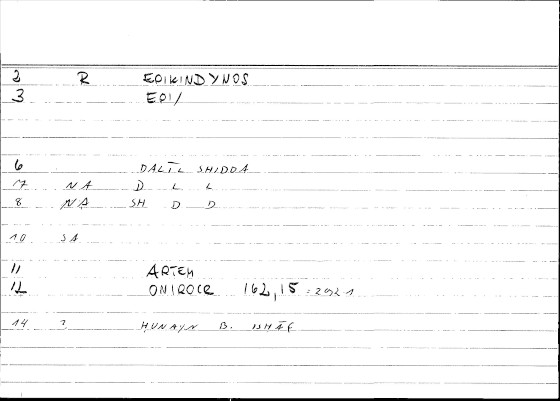 2 R EPIKINDYNOS
3 EPI/
6 DALĪL SHIDDA
7 NA D L L
8 NA SH D D
10 SA
11 ARTEM
12 ONIROCR 162,15 =292 1
14 ? HUNAYN B. ISHĀḲ